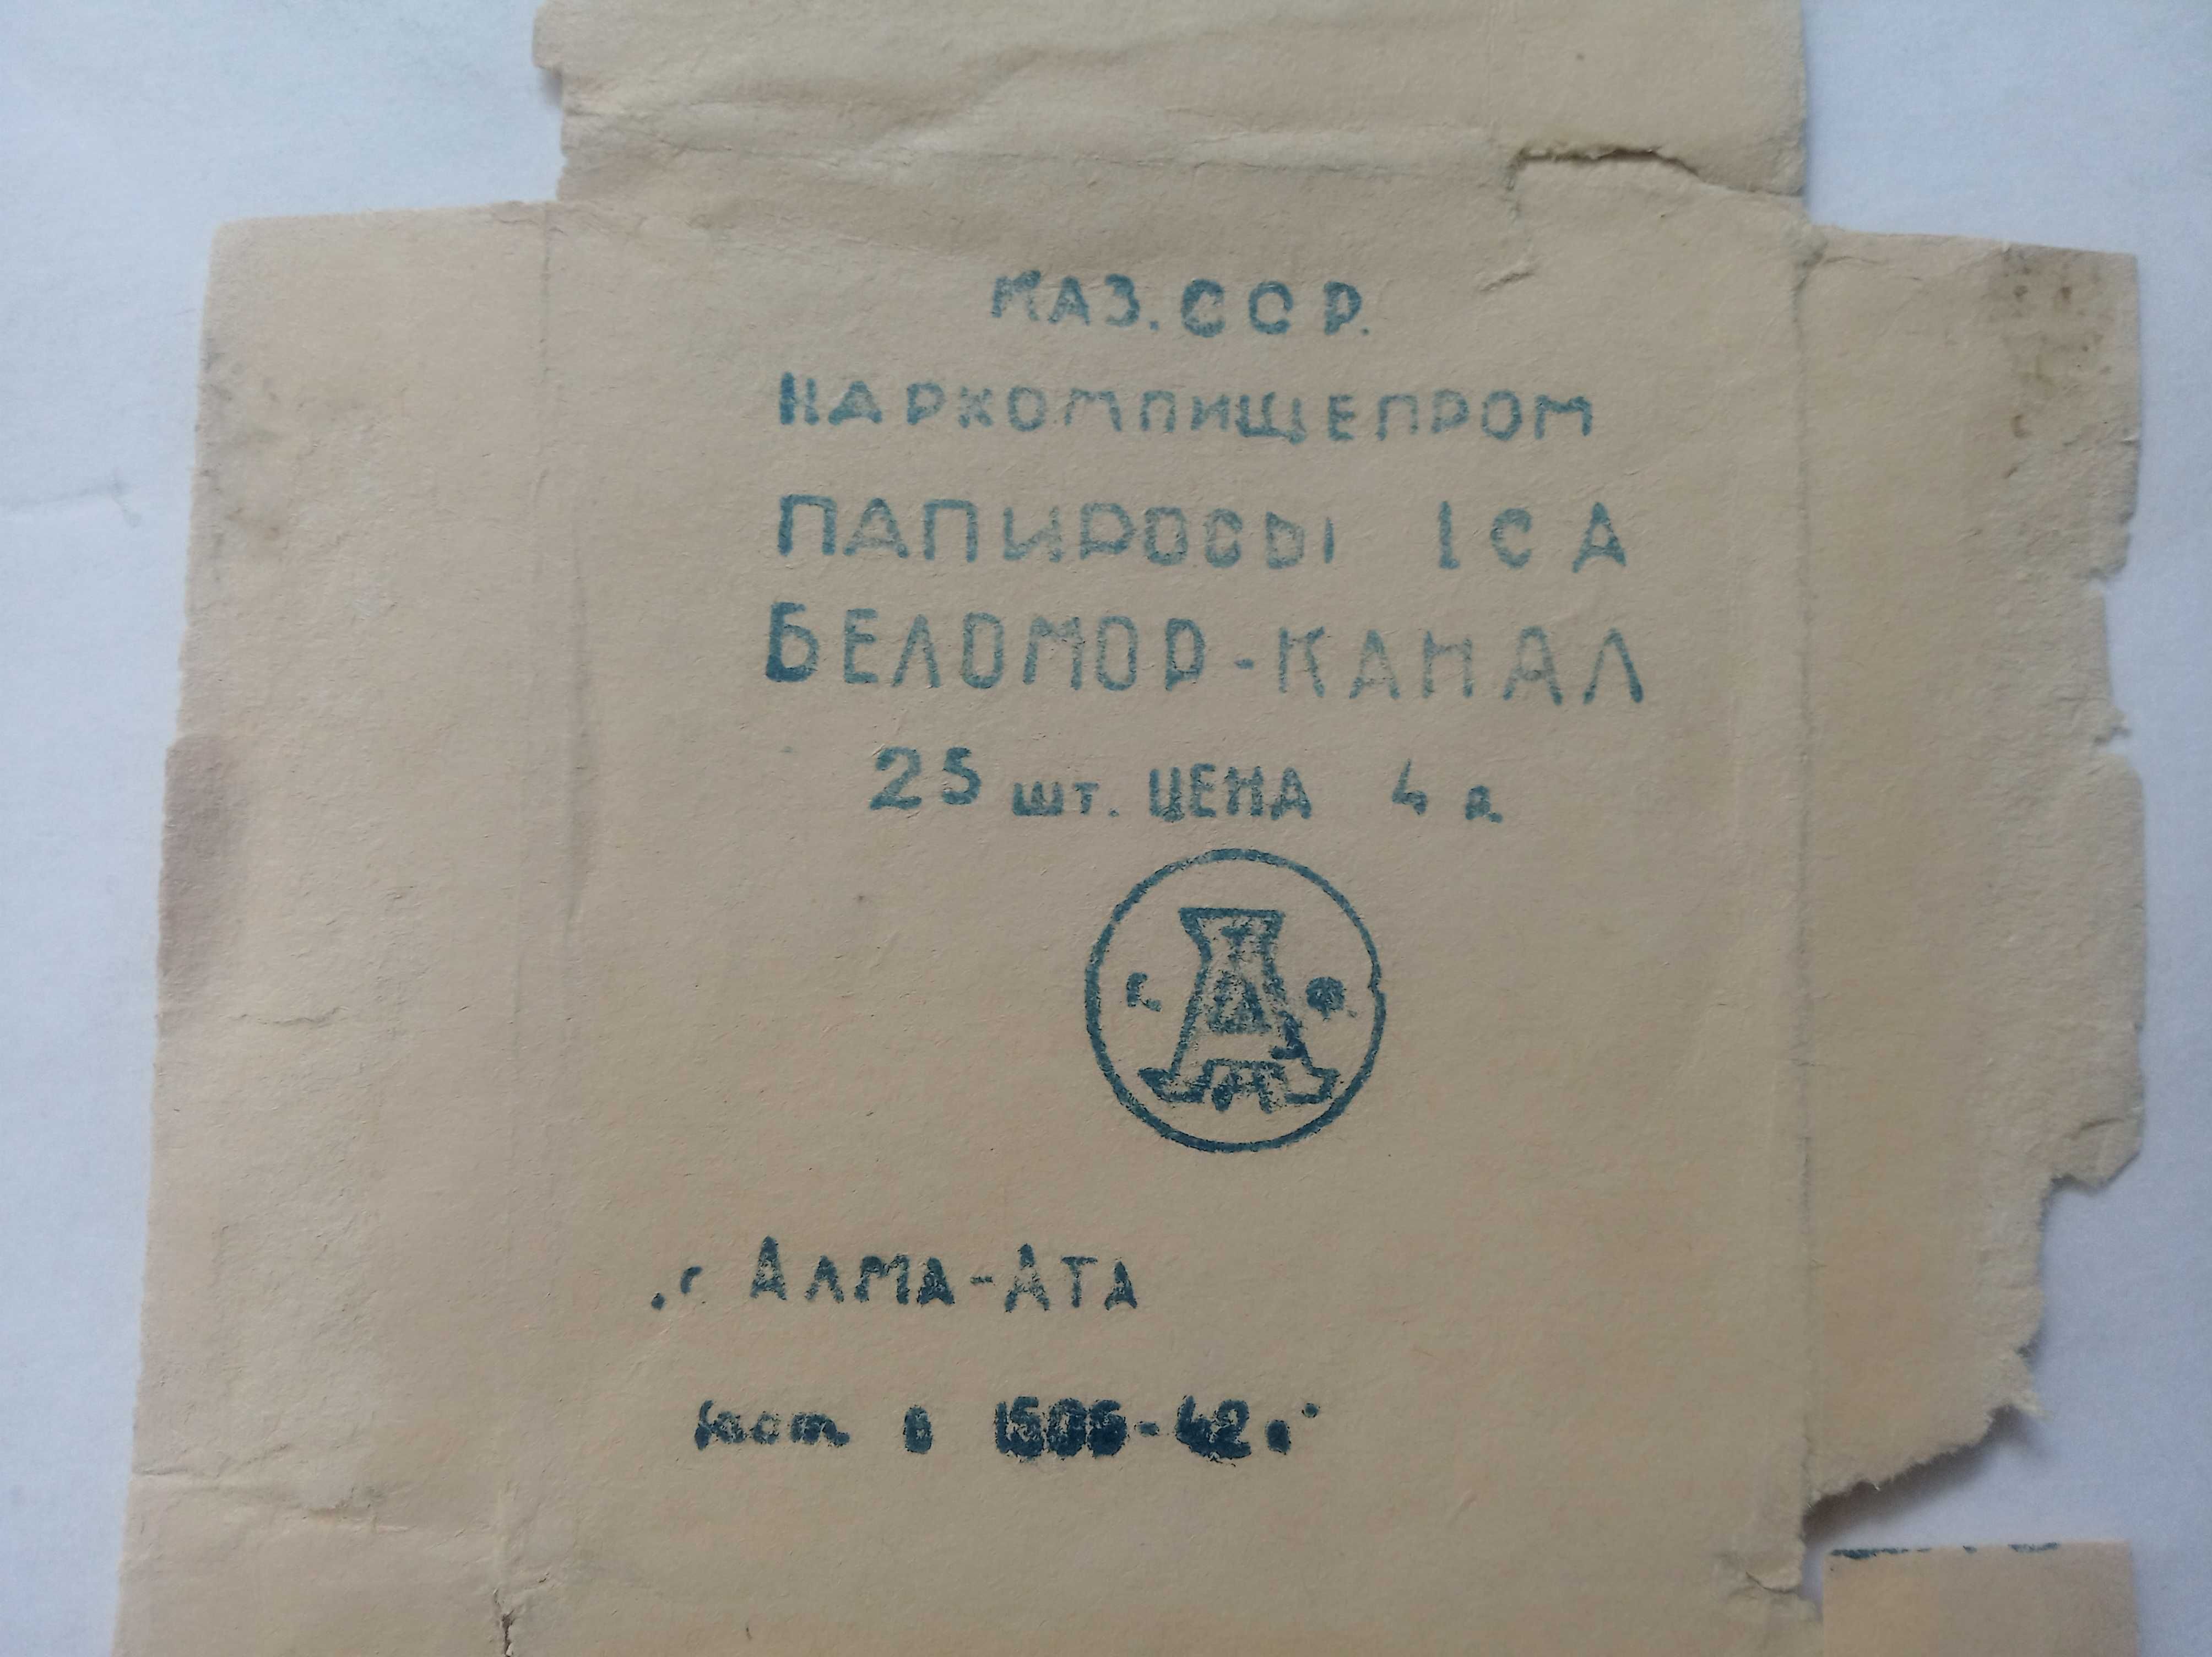 КАЗ.ССР.
НАРКОМПИЩЕПРОМ
ПАПИРОСЫ 1СА
БЕЛОМОР-КАНАЛ
25 шт. ЦЕНА 4 р.
Г. Т А Ф.
г АЛМА-АТА
гост в 1505-42г